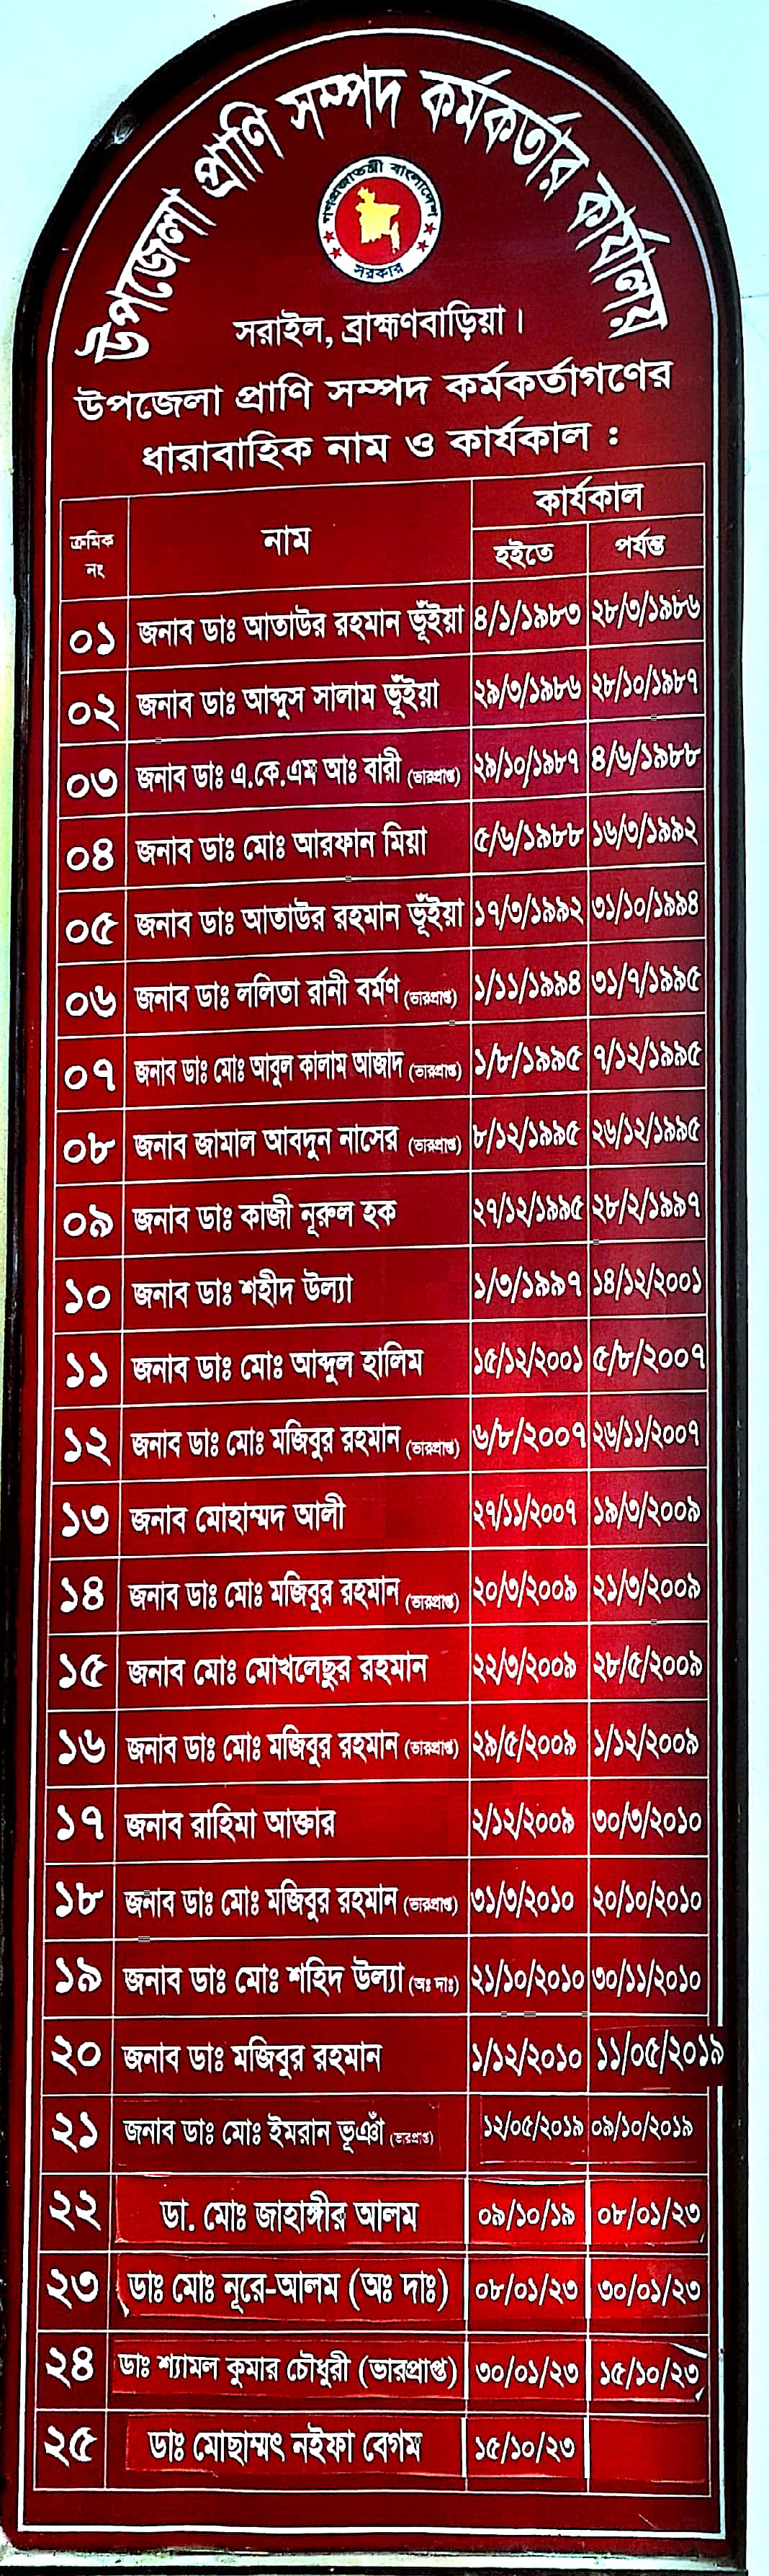 উপজেলা প্রাণি সম্পদ কর্মকর্তার কার্যালয়
গণপ্রজাতন্ত্রী বাংলাদেশ
সরকার
সরাইল, ব্রাহ্মণবাড়িয়া।
উপজেলা প্রাণি সম্পদ কর্মকর্তাগণের
ধারাবাহিক নাম ও কার্যকাল :
ক্রমিক নং নাম কার্যকাল
হইতে পর্যন্ত
০১ জনাব ডাঃ আতাউর রহমান ভূঁইয়া ৪/১/১৯৮৩ ২৮/৩/১৯৮৬
০২ জনাব ডাঃ আব্দুস সালাম ভূঁইয়া ২৯/৩/১৯৮৬ ২৮/১০/১৯৮৭
০৩ জনাব ডাঃ এ.কে.এম আঃ বারী (ভারপ্রাপ্ত) ২৯/১০/১৯৮৭ ৪/৬/১৯৮৮
০৪ জনাব ডাঃ মোঃ আরফান মিয়া ৫/৬/১৯৮৮ ১৬/৩/১৯৯২
০৫ জনাব ডাঃ আতাউর রহমান ভূঁইয়া ১৭/৩/১৯৯২ ৩১/১০/১৯৯৪
০৬ জনাব ডাঃ ললিতা রানী বর্মণ (ভারপ্রাপ্ত) ১/১১/১৯৯৪ ৩১/৭/১৯৯৫
০৭ জনাব ডাঃ মোঃ আবুল কালাম আজাদ (ভারপ্রাপ্ত) ১/৮/১৯৯৫ ৭/১২/১৯৯৫
০৮ জনাব জামাল আবদুন নাসের (ভারপ্রাপ্ত) ৮/১২/১৯৯৫ ২৬/১২/১৯৯৫
০৯ জনাব ডাঃ কাজী নূরুল হক ২৭/১২/১৯৯৫ ২৮/২/১৯৯৭
১০ জনাব ডাঃ শহীদ উল্যা ১/৩/১৯৯৭ ১৪/১২/২০০১
১১ জনাব ডাঃ মোঃ আব্দুল হালিম ১৫/১২/২০০১ ৫/৮/২০০৭
১২ জনাব ডাঃ মোঃ মজিবুর রহমান (ভারপ্রাপ্ত) ৬/৮/২০০৭ ২৬/১১/২০০৭
১৩ জনাব মোহাম্মদ আলী ২৭/১১/২০০৭ ১৯/৩/২০০৯
১৪ জনাব ডাঃ মোঃ মজিবুর রহমান (ভারপ্রাপ্ত) ২০/৩/২০০৯ ২১/৩/২০০৯
১৫ জনাব মোঃ মোখলেছুর রহমান ২২/৩/২০০৯ ২৮/৫/২০০৯
১৬ জনাব ডাঃ মোঃ মজিবুর রহমান (ভারপ্রাপ্ত) ২৯/৫/২০০৯ ১/১২/২০০৯
১৭ জনাব রাহিমা আক্তার ২/১২/২০০৯ ৩০/৩/২০১০
১৮ জনাব ডাঃ মোঃ মজিবুর রহমান (ভারপ্রাপ্ত) ৩১/৩/২০১০ ২০/১০/২০১০
১৯ জনাব ডাঃ মোঃ শহিদ উল্যা (অঃ দাঃ) ২১/১০/২০১০ ৩০/১১/২০১০
২০ জনাব ডাঃ মজিবুর রহমান ১/১২/২০১০ ১১/০৫/২০১৯
২১ জনাব ডাঃ মোঃ ইমরান ভূঞাঁ (ভারপ্রাপ্ত) ১২/০৫/২০১৯ ০৯/১০/২০১৯
২২ ডা. মোঃ জাহাঙ্গীর আলম ০৯/১০/১৯ ০৮/০১/২৩
২৩ ডাঃ মোঃ নূরে-আলম (অঃ দাঃ) ০৮/০১/২৩ ৩০/০১/২৩
২৪ ডাঃ শ্যামল কুমার চৌধুরী (ভারপ্রাপ্ত) ৩০/০১/২৩ ১৫/১০/২৩
২৫ ডাঃ মোছাম্মৎ নইফা বেগম ১৫/১০/২৩